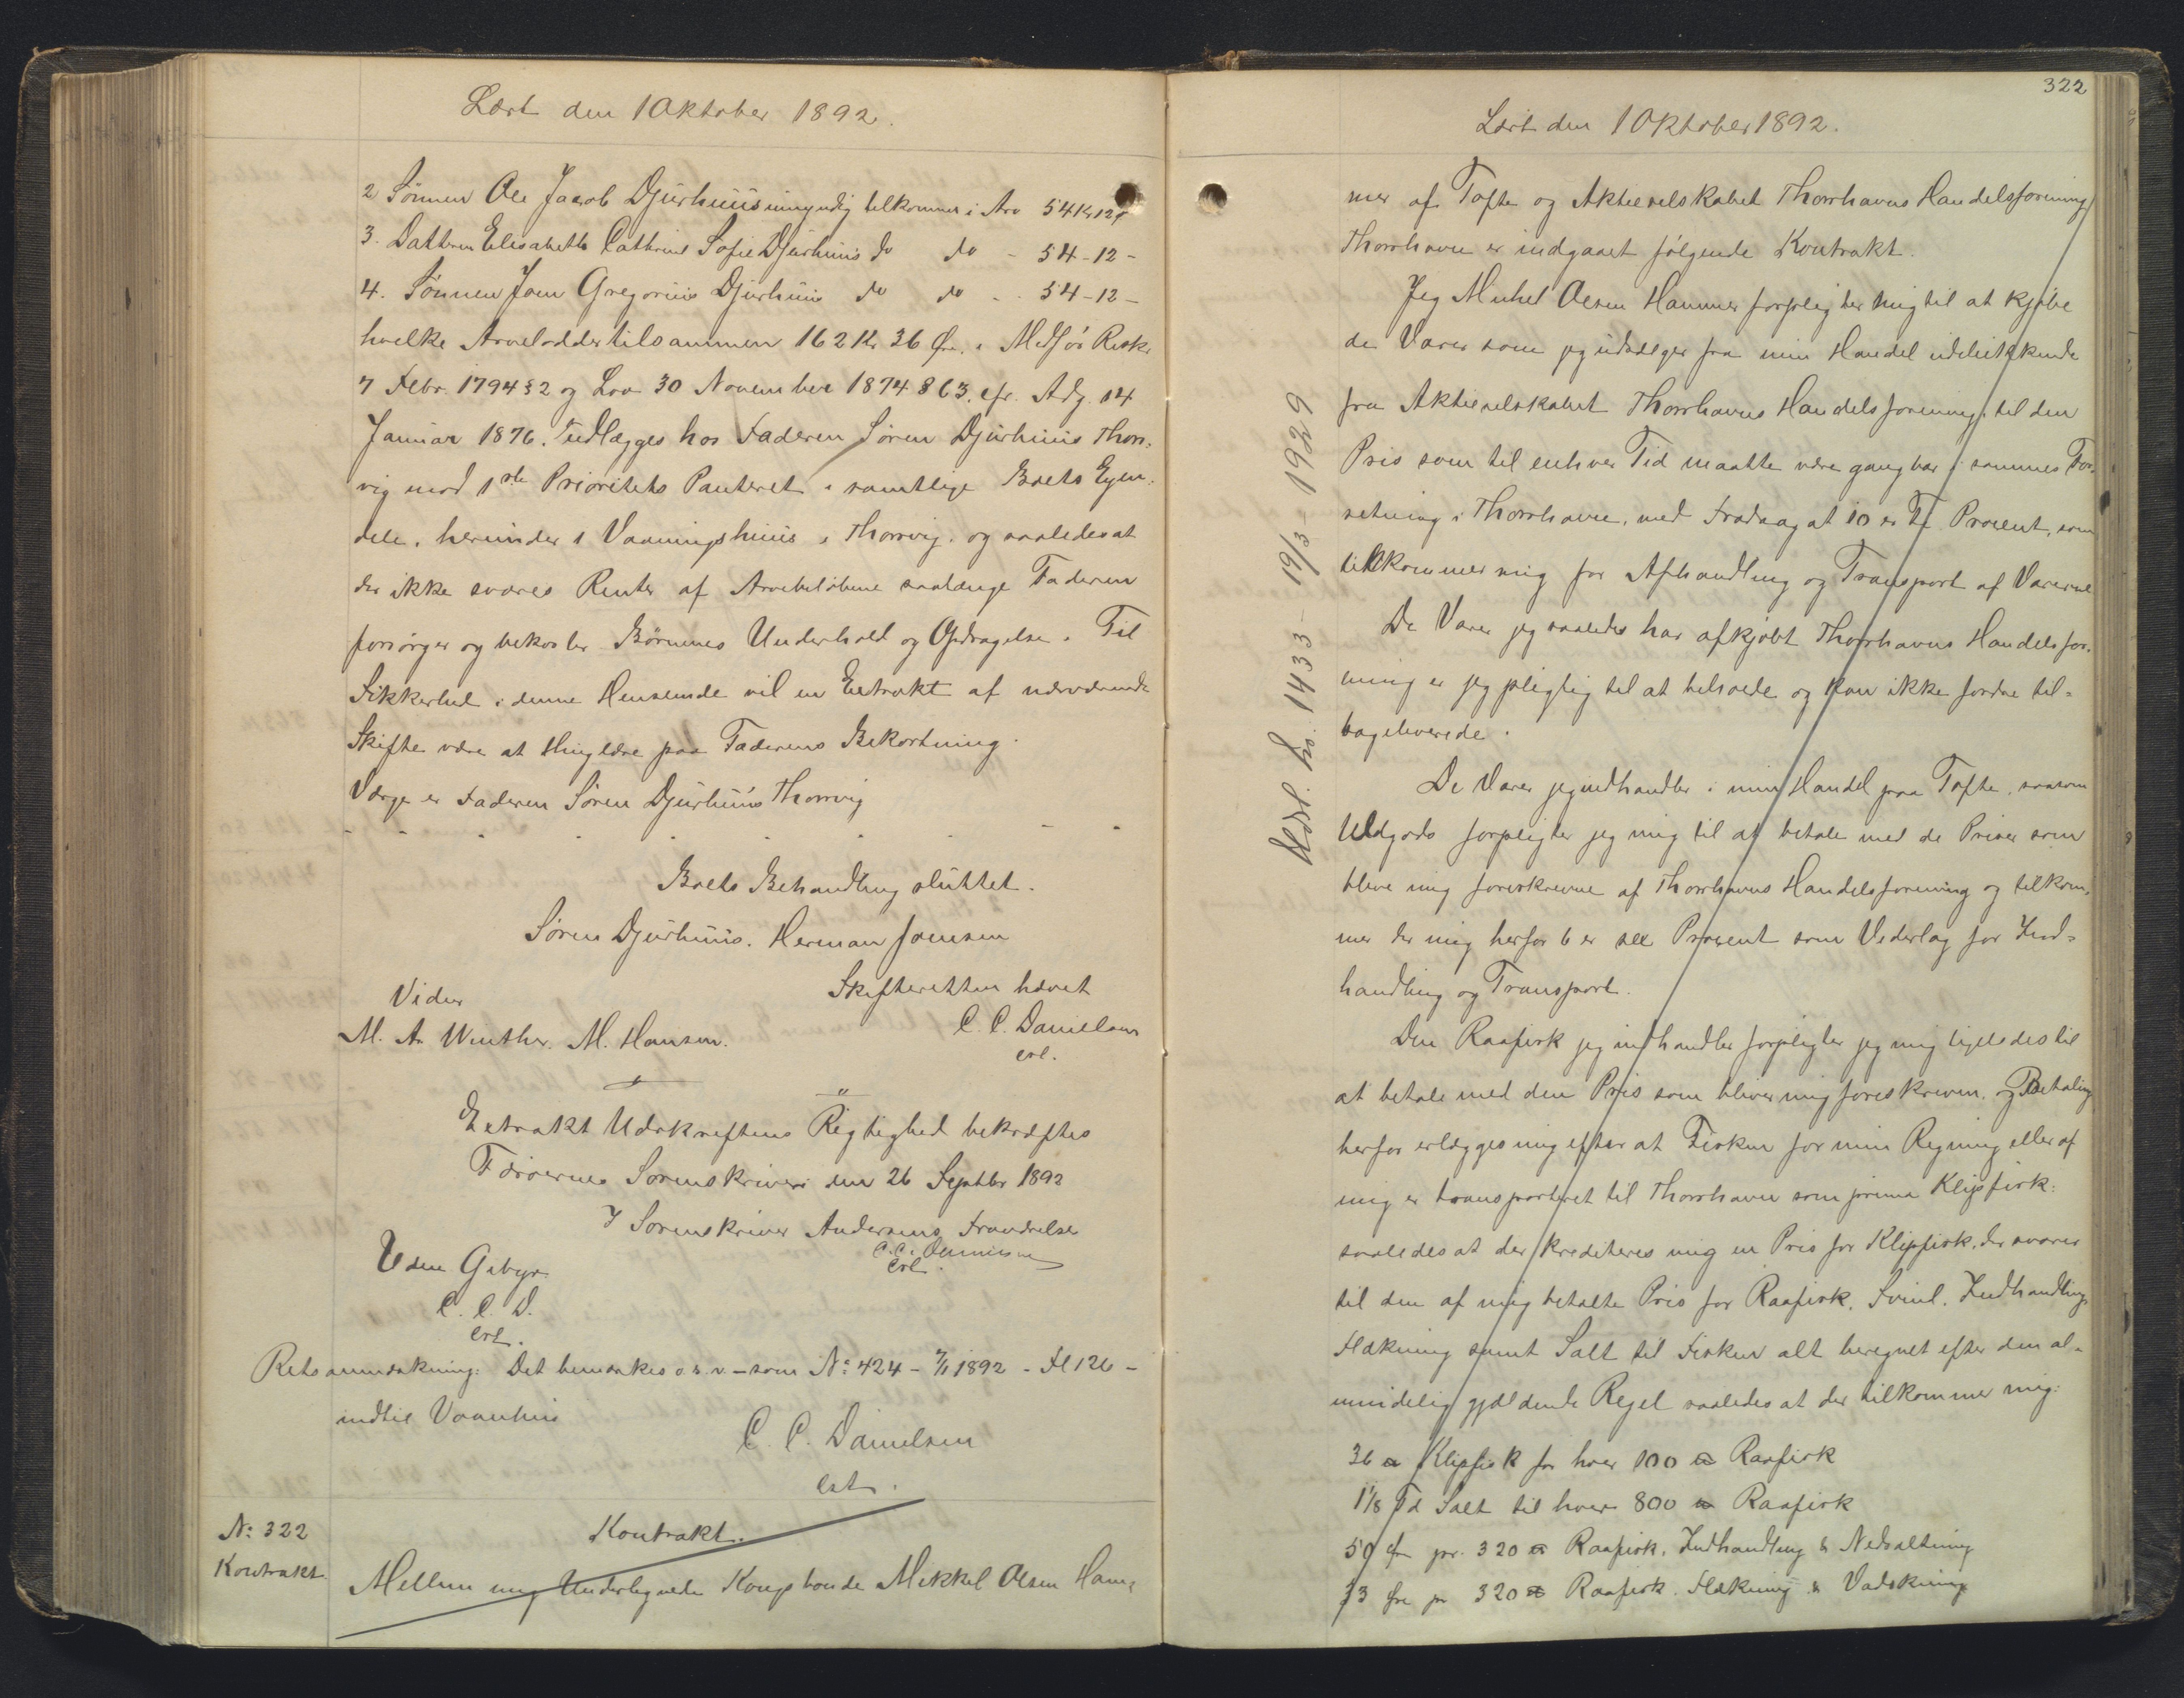 Læst den 1 Oktober 1892.
2 Sønnen Ole Jacob Djurhuus umyndig tilkommer i Arv 54 Kr 12
3. Datteren Elisabeth Cathrine Sofie Djurhuus do do - 54-12-
4. Sønnen Joen Gregorius Djurhuus do do - 54-12-
hvilke Arvelodder tilsammen 162 Kr 36 Øre, i Medfør Reskr
7 Febr. 1794 § 2 og Lov 30 November 1874 § 63, cfr. Adg. 14
Januar 1876. Indlægges hos Faderen Søren Djurhuus Thors-
vig mod 1ste Prioritets Panteret i samtlige Boets Ejen-
dele, herunder 1 Vaaningshuus i Thorsvig, og saaledes at
der ikke svares Renter af Arvebeløbene saalænge Faderen
forsørger og bekoster Børnenes Underhold og Opdragelse. Til
Sikkerhed i denne Henseende vil en Extrakt af nærværende
Skifte være at thinglæse paa Faderens Bekostning.
Værge er Faderen Søren Djurhuus Thorsvig
Boets Behandling sluttet.
Søren Djurhuus. Herman Joensen
Skifteretten hævet
Vidner
C. C. Danielsen
M. A. Winther. M. Hansen.
cst.
Extrakt Udskriftens Rigtighed bekræftes
Færøernes Sorenskriveri den 26 Septbr 1892
I Sorenskriver Andersens Fraværelse
C. C. Danielsen
cst.
Uden Gebyr
C. C. D.
cst.
Retsanmærkning: Det bemærkes o.s.v. - som No 424 - 7/1 1892 - Fl 126 -
indtil Vaanhuus
C. C. Danielsen
cst.
No 322
Kontrakt.
Kontrakt.
Mellem mig Undertegnede Kongsbonde Mikkel Olsen Ham-
322
Læst den 1 Oktober 1892.
mer af Tofte og Aktieselskabet Thorshavns Handelsforening
Thorshavn er indgaaet følgende Kontrakt.
Jeg Mikkel Olsen Hammer forpligter mig til at kjøbe
de Varer som jeg udsælger fra min Handel udelukkende
fra Aktieselskabet Thorshavns Handelsforening, til den
Pris som til enhver Tid maatte være gangbar i sammes For-
retning i Thorshavn, med Fradrag at 10 er Ti Procent, som
tilkommer mig for Afhandling og Transport af Varerne
De Varer jeg saaledes har afkjøbt Thorshavns Handelsfor-
ening er jeg pligtig til at beholde og kan ikke fordre til-
bageleverede.
De Varer jeg indhandler i min Handel paa Tofte, saasom
Uldgods forpligter jeg mig til at betale med de Priser som
blive mig foreskrevne af Thorshavns Handelsforening og tilkom-
mer der mig herfor 6 er sex Procent som Vederlag for Ind-
handling og Transport.
Den Raafisk jeg indhandler forpligter jeg mig ligeledes til
at betale med den Pris som bliver mig foreskreven, og Betaling
herfor erlægges mig efter at Fisken for min Regning eller af
mig er transporteret til Thorshavn som prima Klipfisk:
saaledes at der krediteres mig en Pris for Klipfisk, der svarer
til den af mig betalte Pris for Raafisk, Svind, Indhandling,
Flækning samt Salt til Fisken alt beregnet efter den al-
mindelig gjældende Regel saaledes at der tilkommer mig:
36 ℔ Klipfisk for hver 100 ℔ Raafisk
1 1/8 Td Salt til hver 800 ℔ Raafisk
50 Ø pr. 320 ℔ Raafisk. Indhandling & Nedsaltning
33 Øre pr 320 ℔ Raafisk. Flækning & Vadskning
Udsl. No. 1433 - 19/3 - 1929